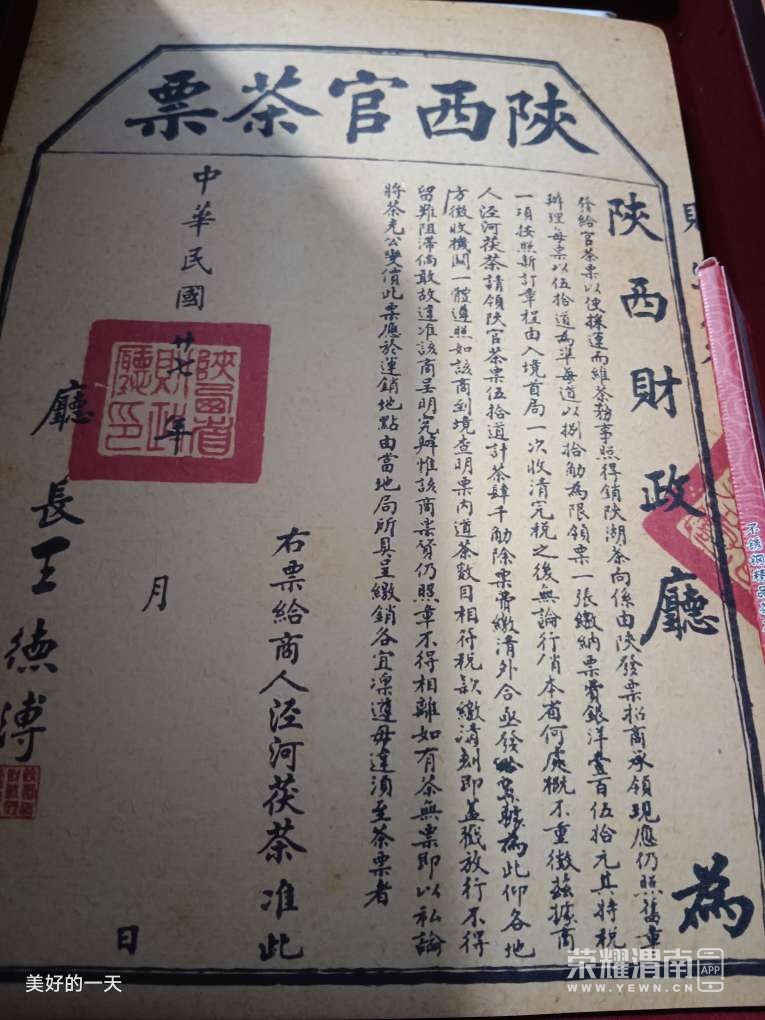 陝西官茶票
陝西財政廳為
發給官茶票以便採運而維茶務事照得銷陝湖茶向係由陝發票招商承領現應仍照舊章
辦理每票以伍拾道為準每道以捌拾觔為限領票一張繳納票費銀洋壹百伍拾元其特稅
一項按照新訂章程由入境首局一次收清完稅之後無論行俏本省何處概不重徵茲據商
人泾河茯茶請領陝官茶票伍拾道計茶肆千觔除票費繳清外合亟發給票據為此仰各地
方徵收機關一體遵照如該商到境查明票內道茶數目相符稅款繳清刻即蓋戳放行不得
留難阻滯倘敢故違准該商呈明究辦惟該商票貨仍照章不得相離如有茶無票即以私論
將茶充公變價此票應於運銷地點由當地局所具呈繳銷各宜凜遵毋違須至茶票者
右票給商人泾河茯茶准此
中華民國廿七年
月
日
陝西省財政廳印
廳長王德溥
不锈钢精品
美好的一天
荣耀渭南APP
WWW.YEWN.CN